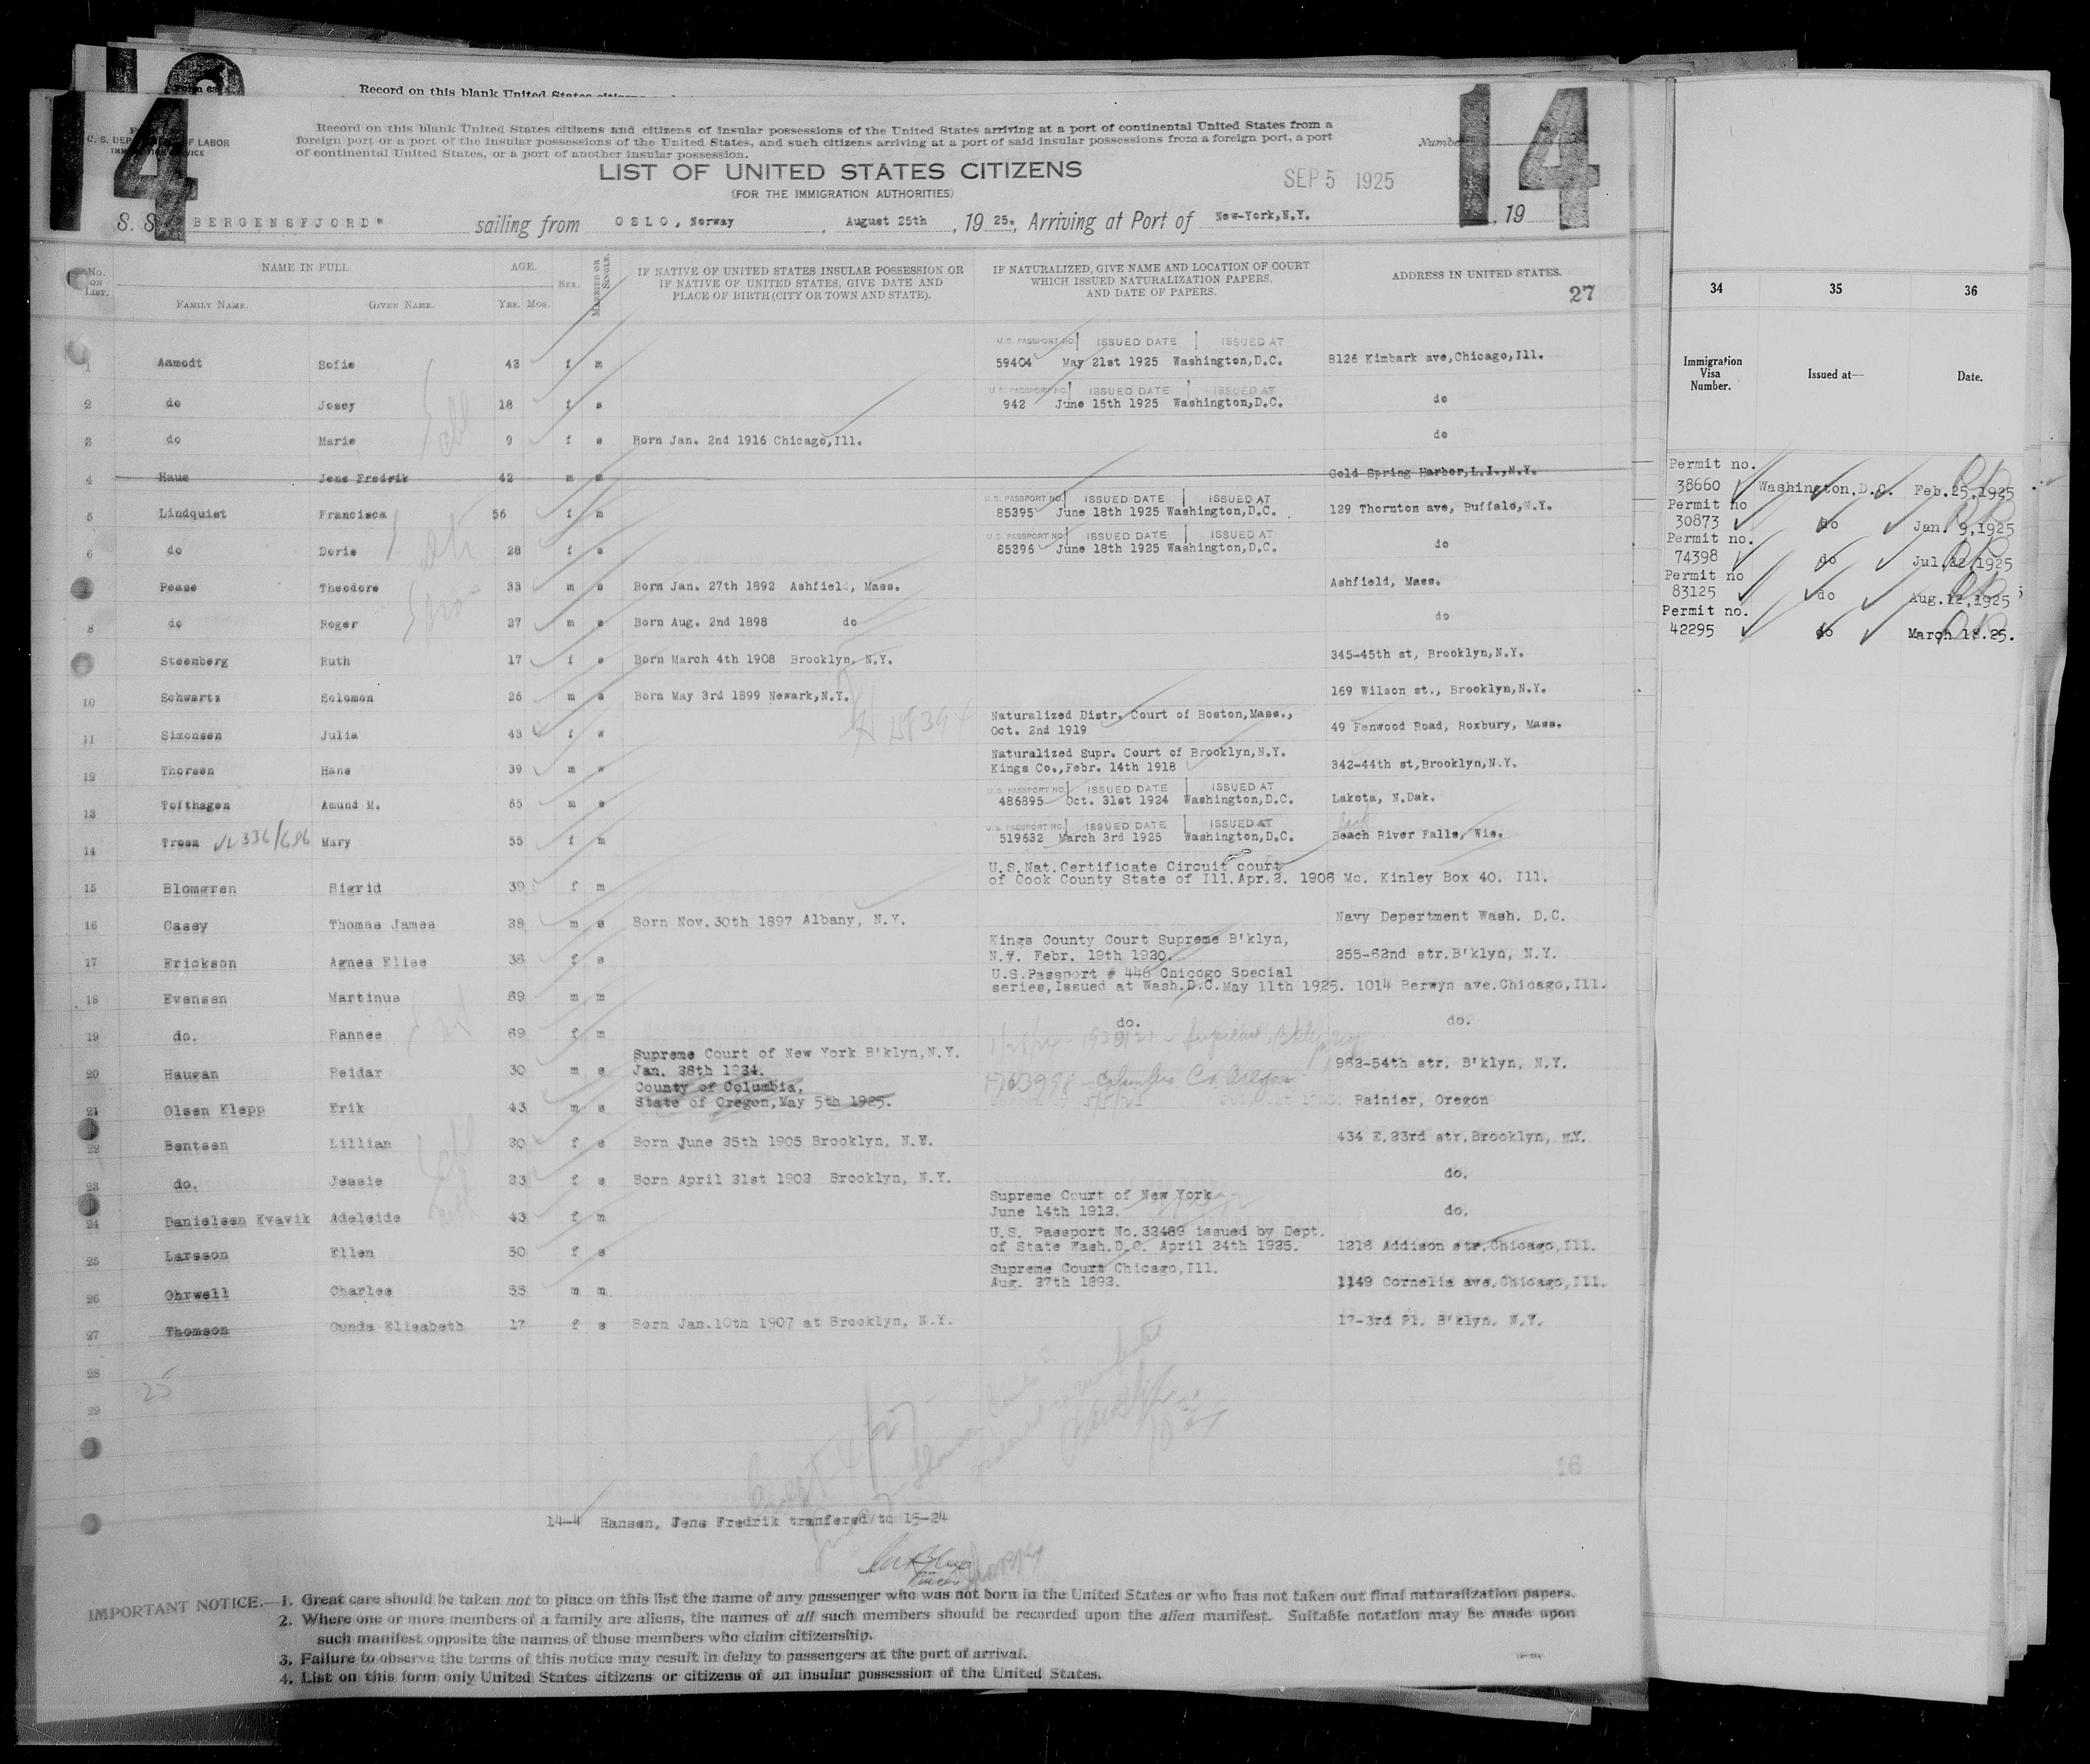 Form 63
Record on this blank United States
14
14
U. S. DEPARTMENT OF LABOR
IMMIGRATION SERVICE
Record on this blank United States citizens and citizens of insular possessions of the United States arriving at a port of continental United States from a
foreign port or a port of the insular possessions of the United States, and such citizens arriving at a port of said insular possessions from a foreign port, a port
of continental United States, or a port of another insular possession.
LIST OF UNITED STATES CITIZENS
(FOR THE IMMIGRATION AUTHORITIES)
SEP 5 1925
S. S. BERGENSFJORD" sailing from OSLO, Norway, August 25th, 19 25., Arriving at Port of New-York, N.Y. , 19
No. ON LIST. NAME IN FULL. AGE. SEX. MARRIED OR SINGLE. IF NATIVE OF UNITED STATES INSULAR POSSESSION OR IF NATIVE OF UNITED STATES, GIVE DATE AND PLACE OF BIRTH (CITY OR TOWN AND STATE). IF NATURALIZED, GIVE NAME AND LOCATION OF COURT WHICH ISSUED NATURALIZATION PAPERS, AND DATE OF PAPERS. ADDRESS IN UNITED STATES.
FAMILY NAME. GIVEN NAME. YRS. MOS. 27
U.S. PASSPORT NO. ISSUED DATE ISSUED AT
1 Aamodt Sofie 43 f m 59404 May 21st 1925 Washington, D.C. 8126 Kimbark ave, Chicago, Ill.
U.S. PASSPORT NO. ISSUED DATE ISSUED AT
2 do Josey 18 f s 942 June 15th 1925 Washington, D.C. do
3 do Marie 9 f s Born Jan. 2nd 1916 Chicago, Ill. do
4 Haus Jens Fredrik 42 m m Cold Spring Harbor, L.I., N.Y.
U.S. PASSPORT NO. ISSUED DATE ISSUED AT
5 Lindquist Francisca 56 f m 85395 June 18th 1925 Washington, D.C. 129 Thornton ave, Buffalo, N.Y.
U.S. PASSPORT NO. ISSUED DATE ISSUED AT
6 do Doris 28 f s 85396 June 18th 1925 Washington, D.C. do
7 Pease Theodore 33 m s Born Jan. 27th 1892 Ashfield, Mass. Ashfield, Mass.
8 do Roger 27 m s Born Aug. 2nd 1898 do do
Steenberg Ruth 17 f s Born March 4th 1908 Brooklyn, N.Y. 345-45th st, Brooklyn, N.Y.
10 Schwartz Solomon 26 m s Born May 3rd 1899 Newark, N.Y. 169 Wilson st., Brooklyn, N.Y.
Naturalized Distr. Court of Boston, Mass.,
11 Simonsen Julia 43 f w Oct. 2nd 1919 49 Fenwood Road, Roxbury, Mass.
Naturalized Supr. Court of Brooklyn, N.Y.
12 Thorsen Hans 39 m w Kings Co., Febr. 14th 1918 342-44th st, Brooklyn, N.Y.
U.S. PASSPORT NO. ISSUED DATE ISSUED AT
13 Tofthagen Amund M. 65 m s 486895 Oct. 31st 1924 Washington, D.C. Lakota, N.Dak.
U.S. PASSPORT NO. ISSUED DATE ISSUED AT
14 Troen Mary 55 f m 519632 March 3rd 1925 Washington, D.C. Beach River Falls, Wis.
U.S. Nat. Certificate Circuit court
15 Blomgren Sigrid 39 f m of Cook County State of Ill. Apr. 2. 1906 Mc. Kinley Box 40. Ill.
16 Casey Thomas James 38 m s Born Nov. 30th 1897 Albany, N.Y. Navy Depertment Wash. D.C.
Kings County Court Supreme B'klyn,
17 Erickson Agnes Elise 36 f s N.Y. Febr. 19th 1920. 255-62nd str. B'klyn, N.Y.
U.S. Passport # 446 Chicogo Special
18 Evensen Martinus 69 m m series, Issued at Wash. D.C. May 11th 1925. 1014 Berwyn ave. Chicago, Ill.
19 do. Rannee 69 f m do. do.
Supreme Court of New York B'klyn, N.Y.
20 Haugan Reidar 30 m s Jan. 28th 1924. 962-54th str. B'klyn, N.Y.
County of Columbia,
21 Olsen Klepp Erik 43 m s State of Oregon, May 5th 1925. Rainier, Oregon
22 Bentsen Lillian 20 f s Born June 25th 1905 Brooklyn, N.Y. 434 E. 23rd str. Brooklyn, N.Y.
23 do. Jessie 23 f s Born April 21st 1902 Brooklyn, N.Y. do.
Supreme Court of New York
24 Danielsen Kvavik Adeleide 43 f m June 14th 1912. do.
U.S. Passport No. 32489 issued by Dept.
25 Larsson Ellen 50 f s of State Wash. D.C. April 24th 1925. 1218 Addison str. Chicago, Ill.
Supreme Court Chicago, Ill.
26 Ohrwell Charles 55 m m Aug. 27th 1892. 1149 Cornelia ave. Chicago, Ill.
27 Thomson Gunda Elisabeth 17 f s Born Jan. 10th 1907 at Brooklyn, N.Y. 17-3rd Pl. B'klyn, N.Y.
28
25
29
16
14-4 Hansen, Jens Fredrik tranfered to 15-24
IMPORTANT NOTICE.—1. Great care should be taken not to place on this list the name of any passenger who was not born in the United States or who has not taken out final naturalization papers.
2. Where one or more members of a family are aliens, the names of all such members should be recorded upon the alien manifest. Suitable notation may be made upon
such manifest opposite the names of those members who claim citizenship.
3. Failure to observe the terms of this notice may result in delay to passengers at the port of arrival.
4. List on this form only United States citizens or citizens of an insular possession of the United States.
34 35 36
Immigration Visa Number. Issued at— Date.
Permit no.
38660 Washington, D.C. Feb. 25, 1925
Permit no
30873 do Jan. 9, 1925
Permit no.
74398 do Jul. 22, 1925
Permit no
83125 do Aug. 12, 1925
Permit no.
42295 do March 18. 25.